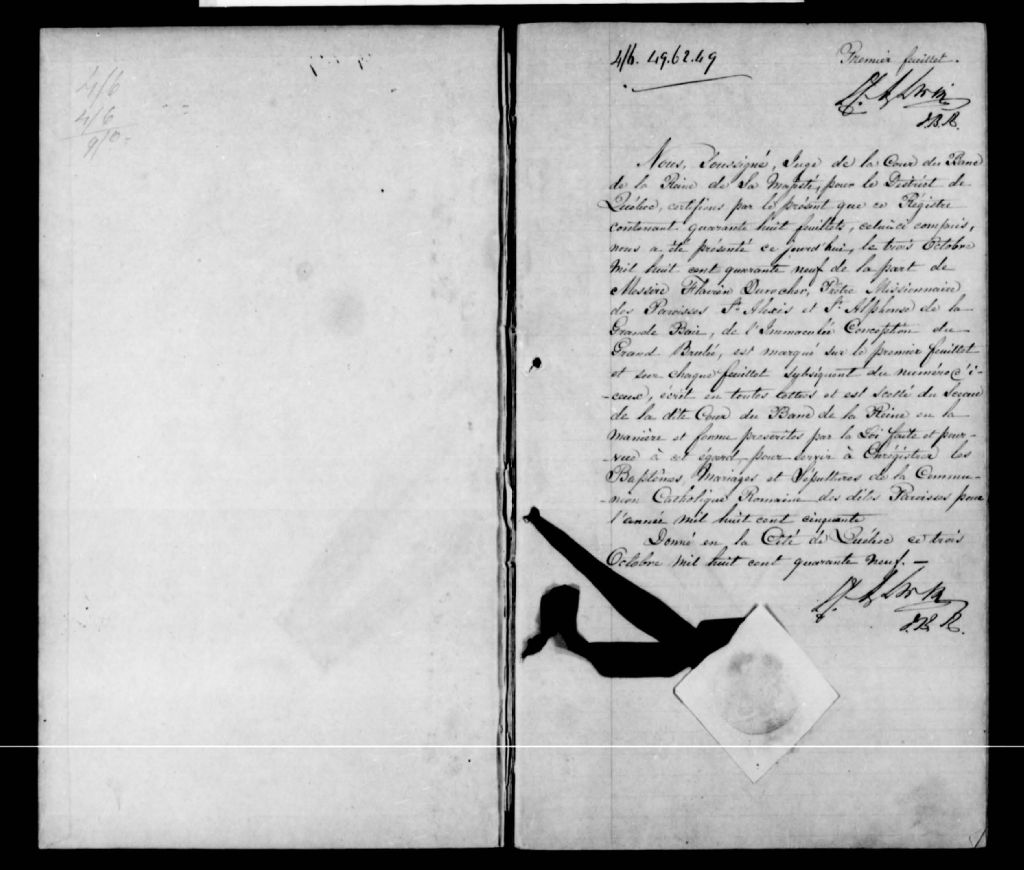 4/6
4/6
9/0.
4/6. 49.62.49
Premier feuillet.
J.B.R.
Nous, Soussigné, Juge de la Cour du Banc
de la Reine de Sa Majesté, pour le District de
Québec, certifions par le présent que ce Régistre
contenant quarante huit feuillets, celui-ci compris,
nous a été présenté ce jourd'hui, le trois Octobre
mil huit cent quarante neuf de la part de
Messire Flavien Durocher, Prêtre Missionnaire
des Paroisses St. Alexis et St. Alphonse de la
Grande Baie, de l'Immaculée Conception du
Grand Brulé, est marqué sur le premier feuillet
et sur chaque feuillet subséquent du numéro d'i-
-ceux, écrit en toutes lettres et est scellé du Sceau
de la dite Cour du Banc de la Reine en la
manière et forme prescrites par la Loi faite et pour-
-vue à cet égard, pour servir à Enrégistrer les
Baptêmes, Mariages et Sépultures de la Commu-
-nion Catholique Romaine des dites Paroisses pour
l'année mil huit cent cinquante
Donné en la Cité de Québec ce trois
Octobre mil huit cent quarante neuf. —
J.B.R.